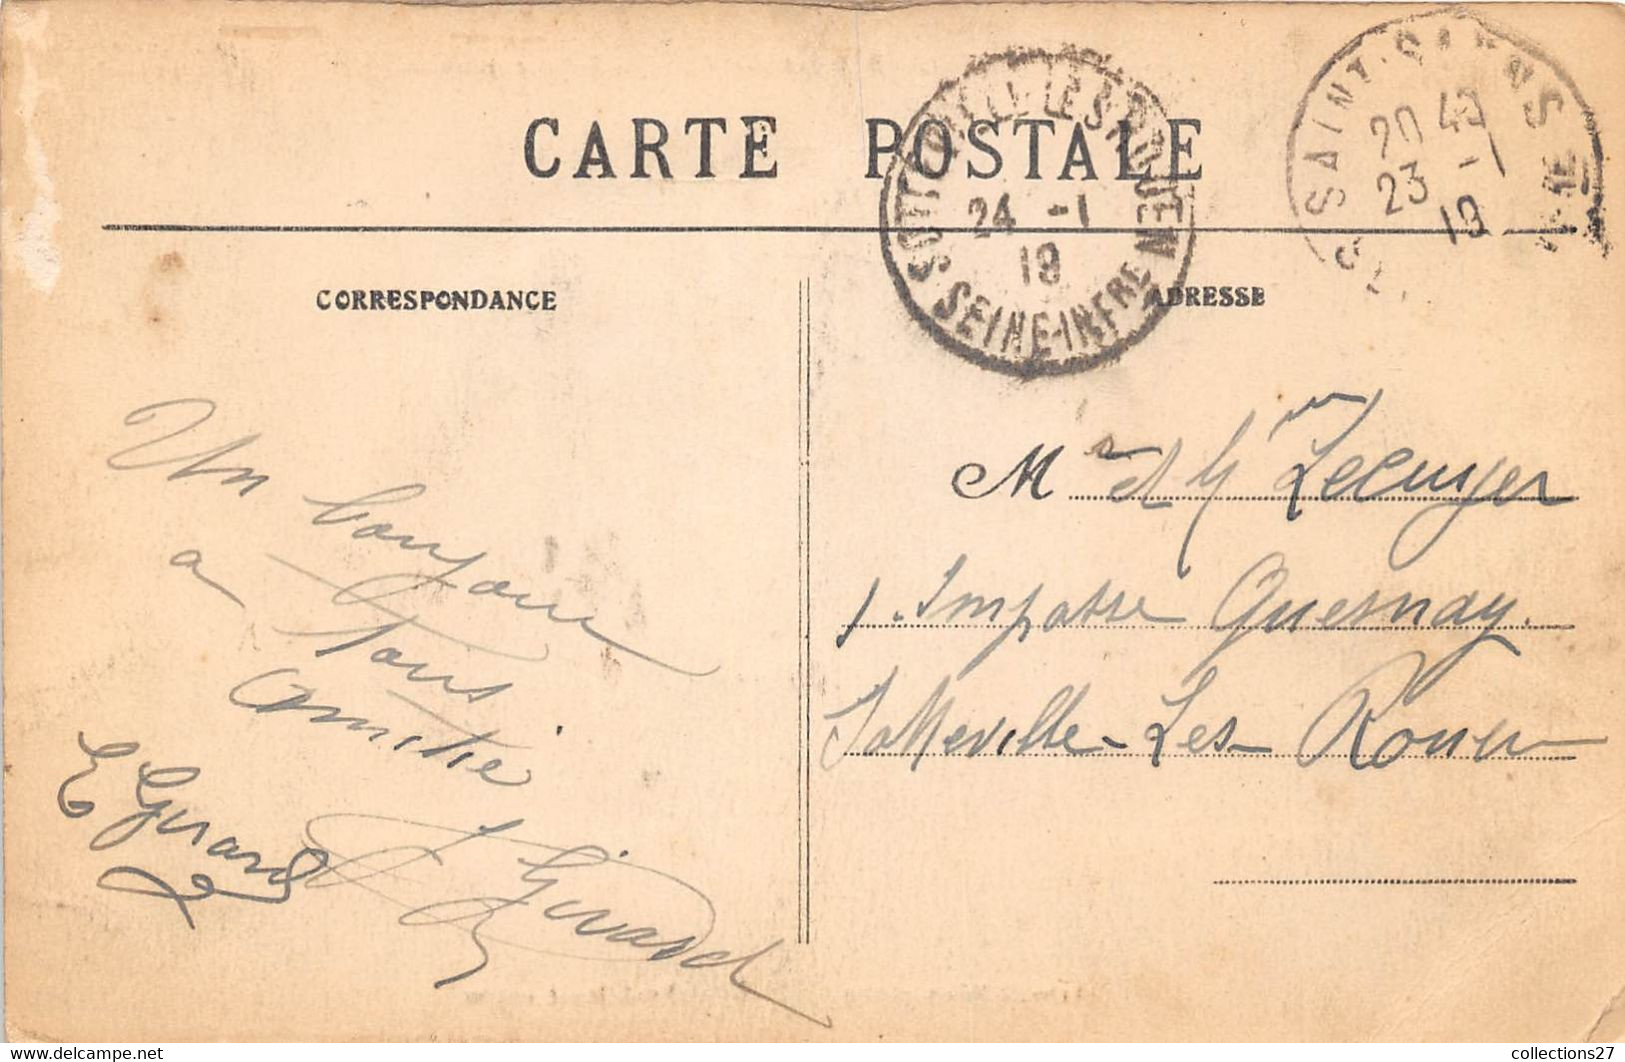 CARTE POSTALE
SOTTEVILLE LES ROUEN
24 -1
19
SEINE-INFRE
SAINT-SAENS
20 40
23 -1
19
CORRESPONDANCE
ADRESSE
Un bonjour
a Tous
Amitié
E Girard
Girard
Mr et Lecuyer
1. Impasse Quesnay.
Sotteville-Les-Rouen
collections27